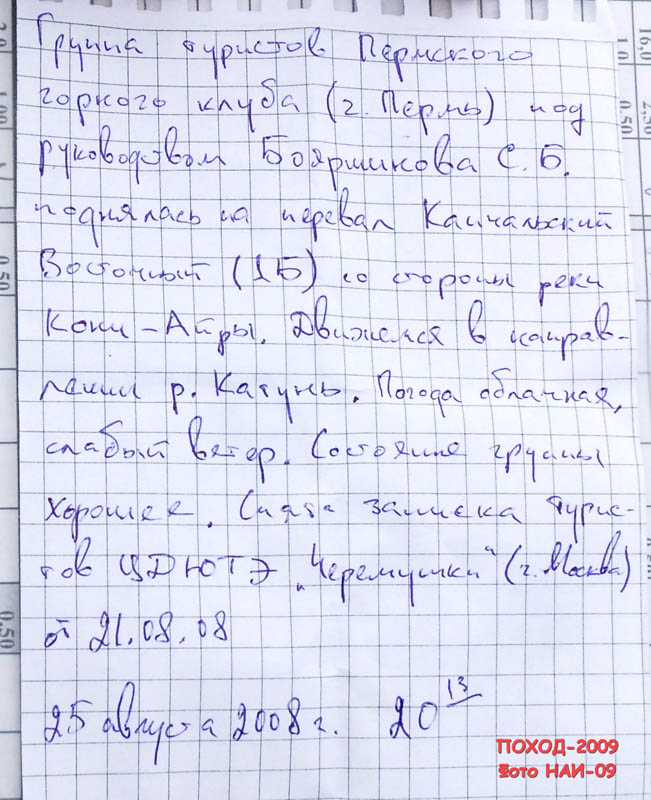 Группа туристов Пермского
горного клуба (г. Пермь) под
руководством Бояршинова С. Б.
поднялась на перевал Капчальский
Восточный (1Б) со стороны реки
Кони-Айры. Движемся в направ-
лении р. Катунь. Погода облачная,
слабый ветер. Состояние группы
хорошее. Снята записка турис-
тов ЦДЮТЭ „Черемушки" (г. Москва)
от 21.08.08
25 августа 2008 г. 20 13
ПОХОД-2009
Фото НАИ-09